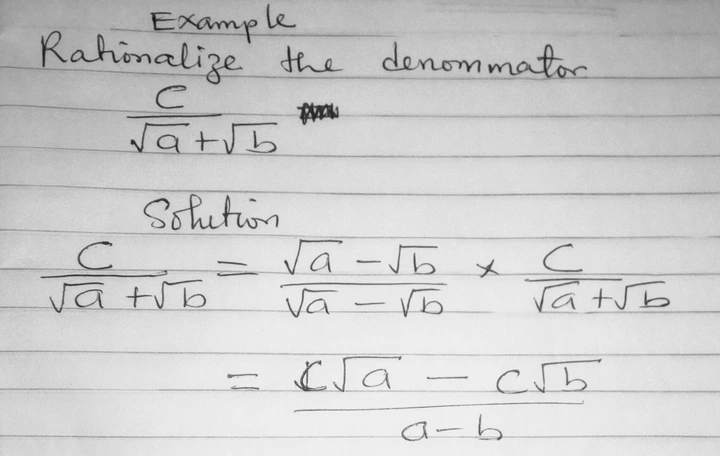 Example
Rationalize the denominator
C
√a + √b
Solution
C / (√a + √b) = (√a − √b) / (√a − √b) × C / (√a + √b)
= (C√a − C√b) / (a − b)